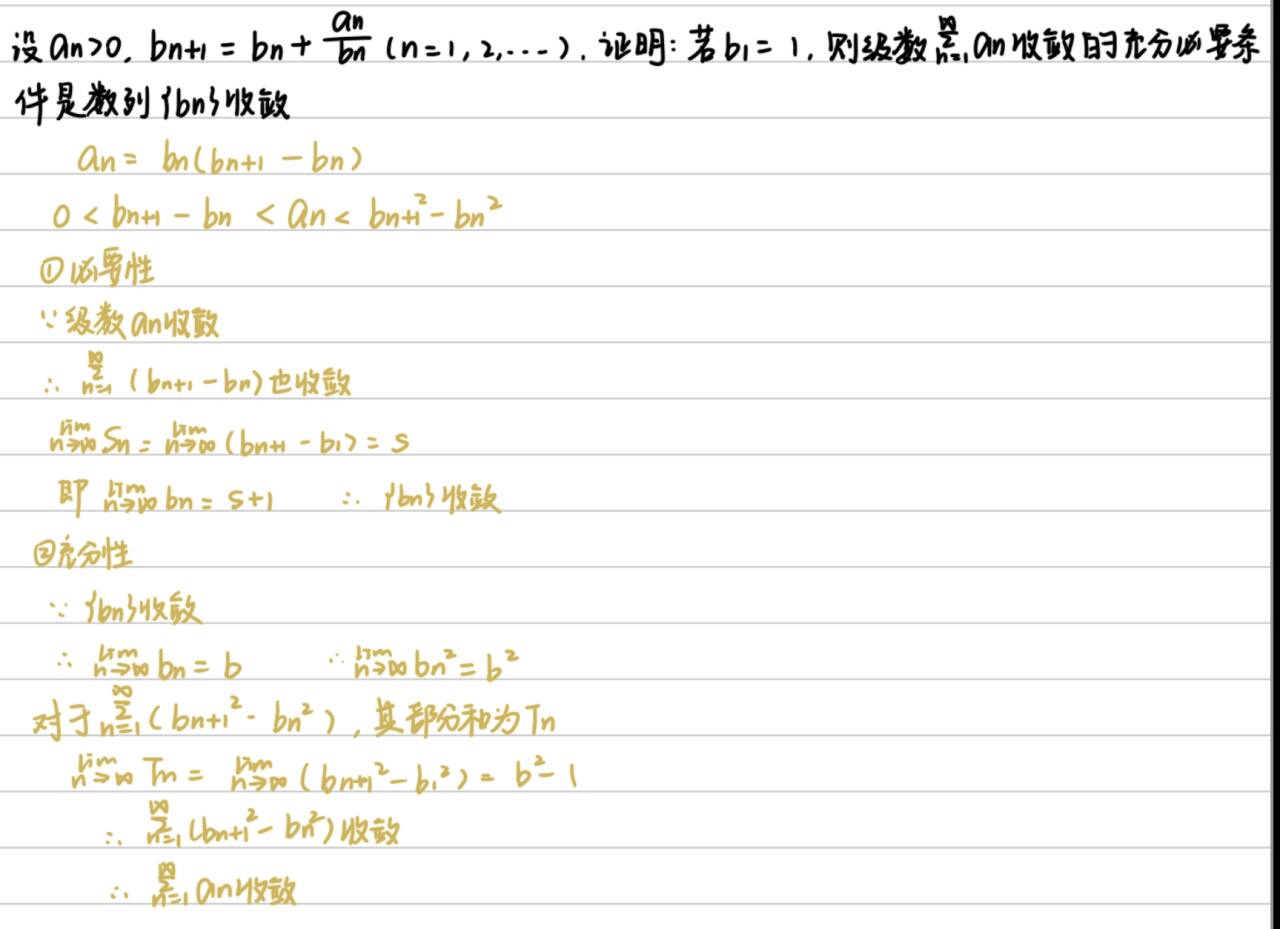 设an>0, bn+1 = bn + an/bn (n=1,2,···). 证明: 若b1=1, 则级数∑n=1∞an收敛的充分必要条
件是数列{bn}收敛
an = bn(bn+1 - bn)
0 < bn+1 - bn < an < bn+1² - bn²
①必要性
∵级数an收敛
∴ ∑n=1∞ (bn+1 - bn)也收敛
lim n→∞ Sn = lim n→∞ (bn+1 - b1) = s
即 lim n→∞ bn = s+1 ∴ {bn}收敛
②充分性
∵ {bn}收敛
∴ lim n→∞ bn = b ∴ lim n→∞ bn² = b²
对于∑n=1∞(bn+1² - bn²), 其部分和为Tn
lim n→∞ Tn = lim n→∞ (bn+1² - b1²) = b² - 1
∴ ∑n=1∞(bn+1² - bn²)收敛
∴ ∑n=1∞ an收敛